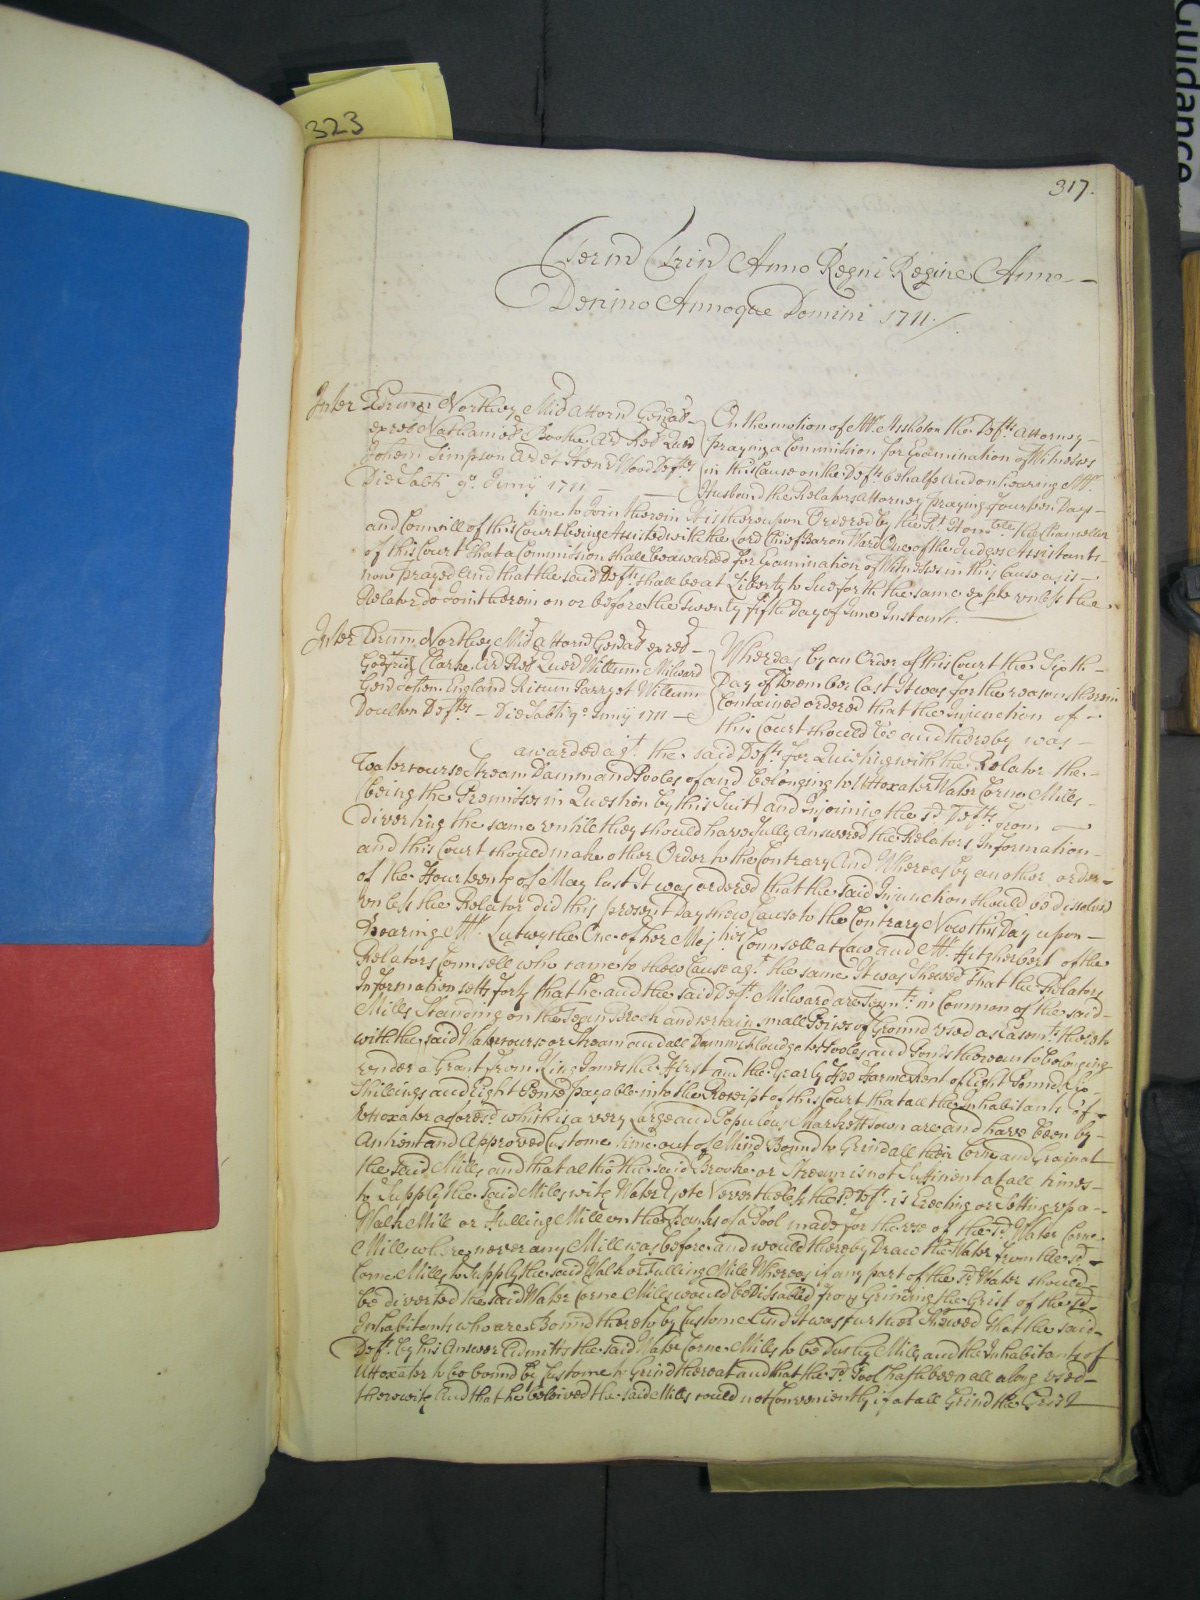 Guidance
323
317.
Term Trin Anno Regni Regine Anne
Decimo Annoque Domini 1711
Inter Edrum Northey Mil Attorn Genal
ex rel Nathaniel Booth Ar Rel Quer
Johem Simpson Ar et Henr Wood Defts
Die Sabti 9o Junij 1711
On the motion of Mr. Assheton the Defts attorney
praying a Commission for Examination of Witnesses
in this Cause on the Defts behalfe And on hearing Mr.
Husband the Relators attorney praying Fourteen Days
time to Join therein It is thereupon Ordered by the Rt Honble the Chancellor
and Councill of this Court being Assisted with the Lord Chief Baron Ward One of the Judges Assistants
of this Court That a Commission shall be awarded for Examination of Witnesses in this Cause as is
now prayed And that the said Defts shall be at Liberty to Sue forth the same ex pte unless the
Relator do Join therein on or before the Twenty fifth Day of June Instant.
Inter Edrum Northey Mil Attorn Genal ex rel
Godfrid Clarke Ar Rel Quer Willum Milward
Gen England Ricum Parry et Willum
Doulton Defts Die Sabti 9o Junij 1711
Whereas by an Order of this Court the Sixth
Day of December last It was for the reasons therein
Contained ordered that the Injunction of
this Court should be and thereby was
awarded agt. the said Defts for Quieting with the Relator the
Watercourse Stream Damm and Pooles of and belonging to Uttoxater Water Corne Mills
(being the Premisses in Question by this Suit) and Injoining the sd Defts from
diverting the same untile they should have fully answered the Relators Information
and this Court should make other Order to the Contrary And Whereas by another order
of the Fourteenth of May last It was ordered that the said Injunction should be dissolved
unless the Relator did this present Day shew Cause to the Contrary Now this Day upon
Hearing Mr. Lutwyche One of her Majties Counsell at Law and Mr. Fitzherbert of the
Relators Counsell who came to shew Cause agt the same It was Shewed That the Relators
Information setts forth that he and the said Deft Milward are Tennts in Common of the said
Mills Standing on the Tean Brook and certain small Peices of Ground used as Easemts thereto
with the said Watercourse or Stream and all Damms Floudgates Pooles and Ponds thereunto belonging
under a Grant from King James the First att the Yearly Fee Farme Rent of Eight Pounds Six
Shillings and Eight Pence payable into the Receipt of this Court that all the Inhabitants of
Uttoxater aforesd which is a very Large and Populous Markett Town are and have been by
Antient and Approved Custome time out of Mind Bound to Grind all their Corne and Graine at
the said Mills and that altho the said Brooke or Stream is not Sufficient at all times
to Supply the said Mills with Water Yet Nevertheless the sd Deft. is Erecting or setting up a
Walk Mill or Fulling Mill on the Banks of a Pool made for the use of the sd Water Corne
Mills where never any Mill was before and would thereby Draw the Water from the sd
Corne Mills to Supply the said Walk or Fulling Mill Whereas if any part of the sd Water should
be diverted the said Water Corne Mills would be Disabled from Grinding the Grist of the sd
Inhabitants who are Bound thereto by Custome And It was further Shewed That the said
Deft. by his Answer Admitts the said Water Corne Mills to be Custome Mills and the Inhabitants of
Uttoxater to be bound by Custome to Grind thereat and that the sd Pool hath been all along used
therewith And that he beleived the said Mills could not Conveniently if at all Grind the Grist